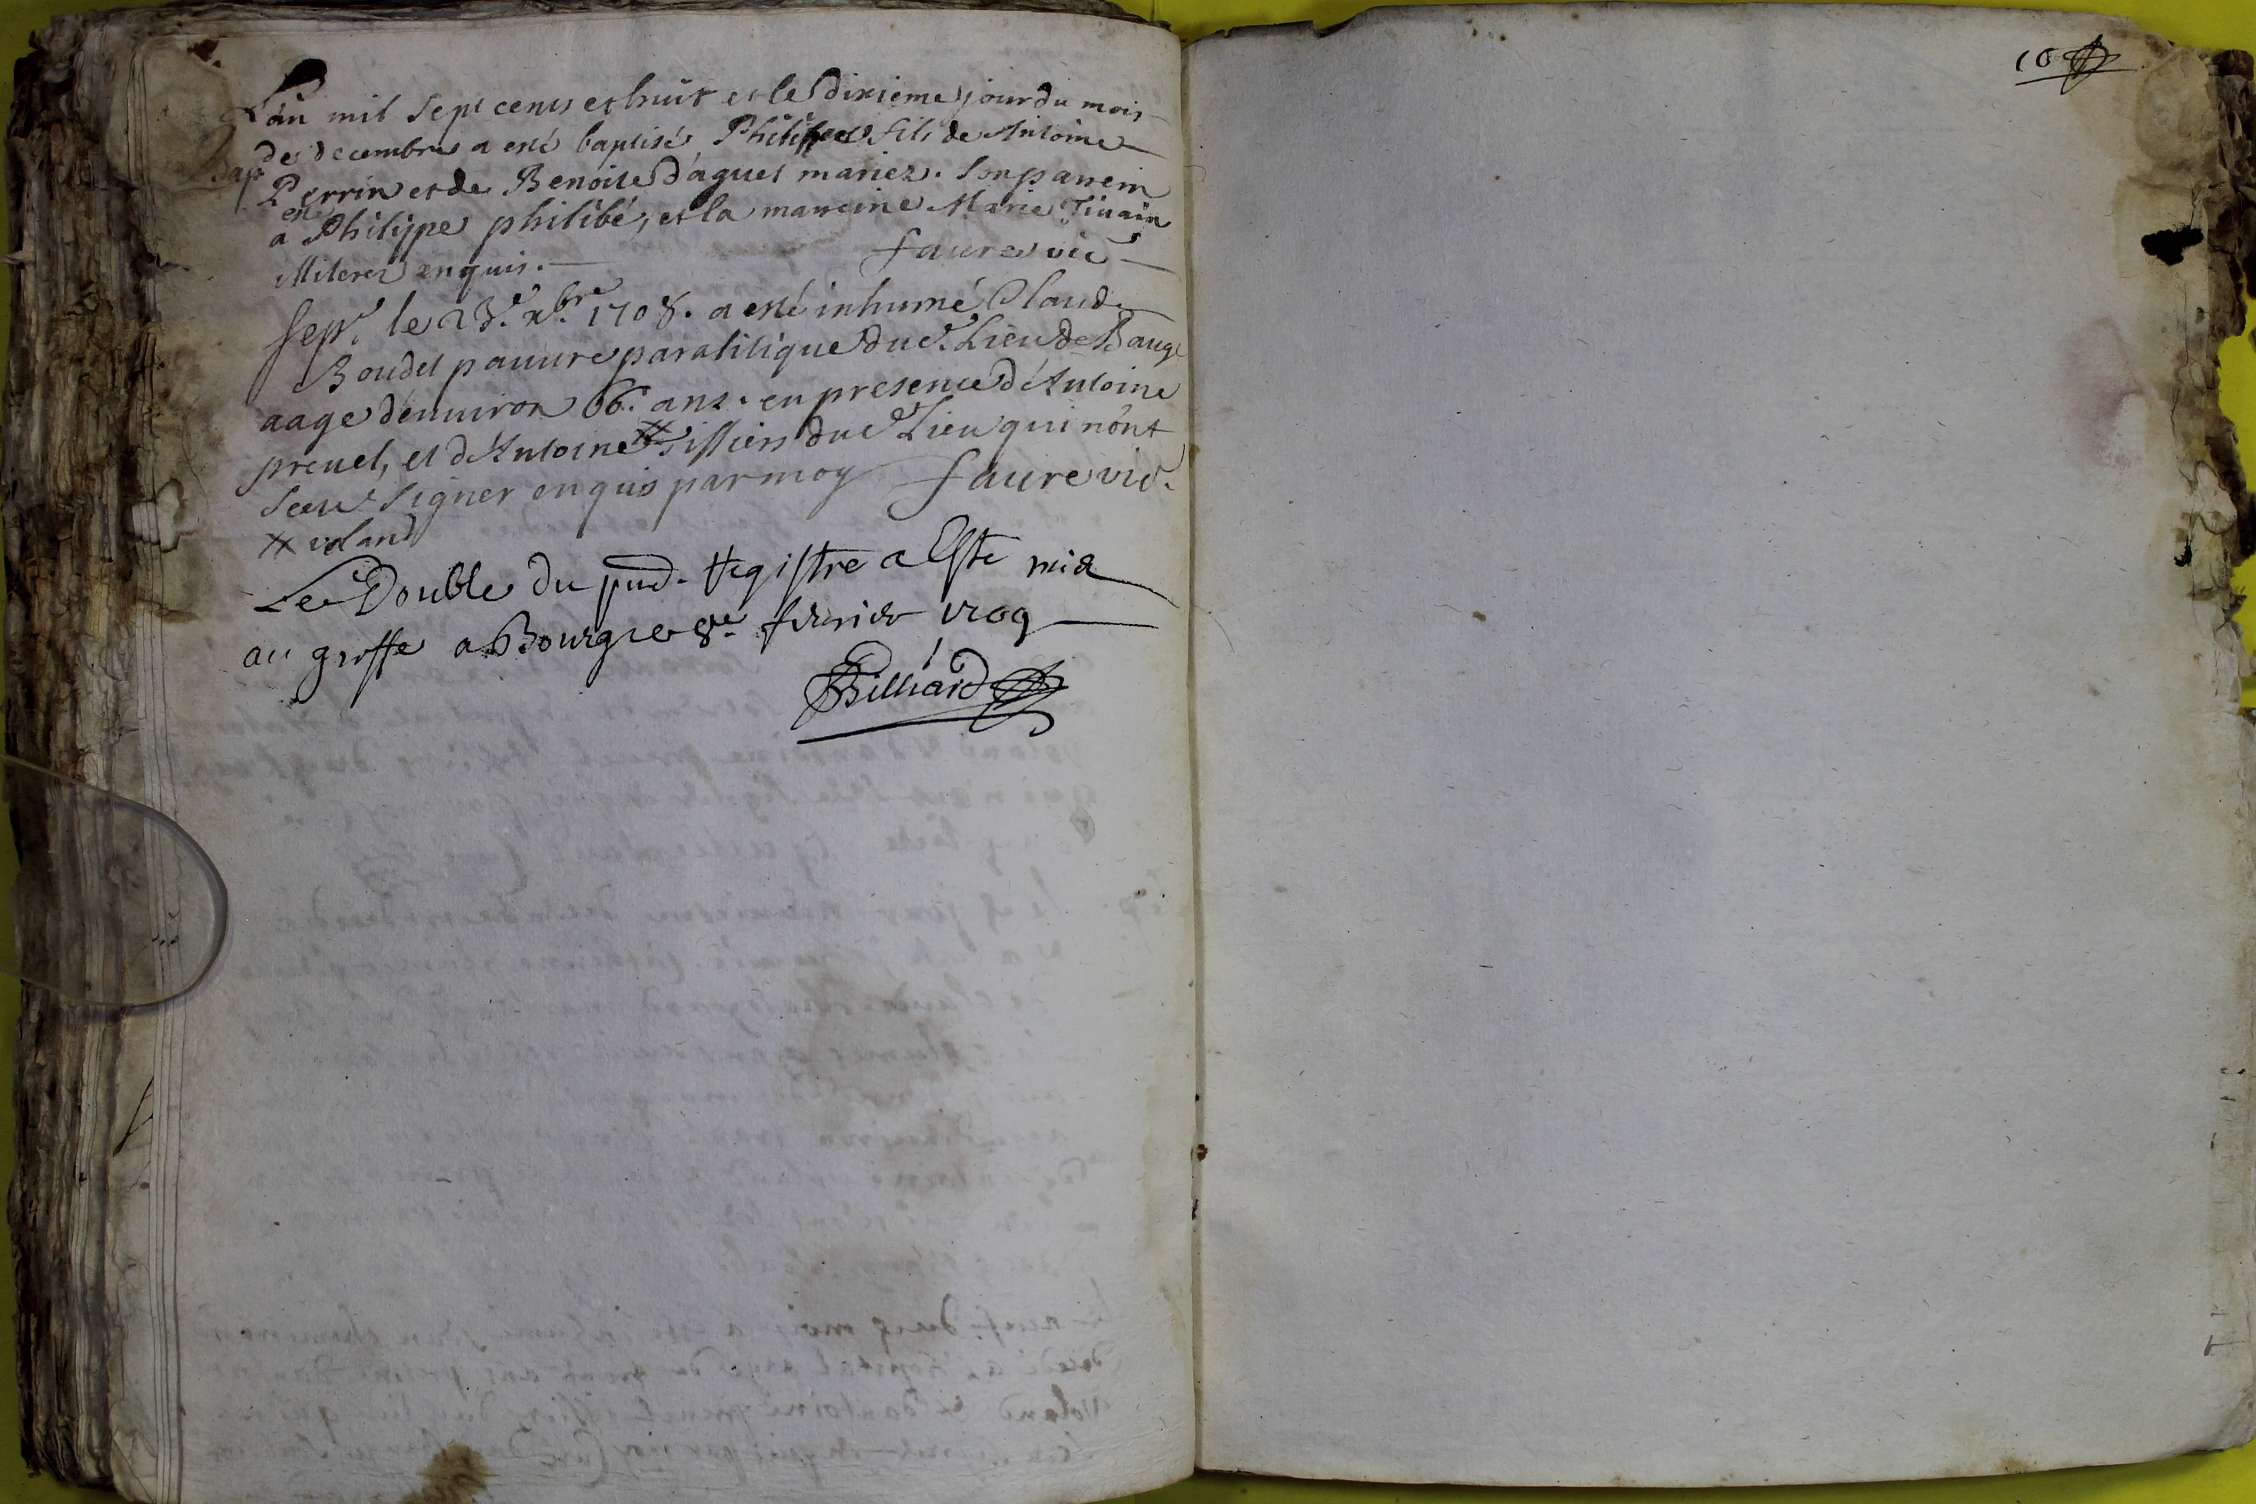 L'an mil sept cents et huit et le dixieme jour du mois
de decembre a esté baptisé Philippe fils de Antoine
Bap.
Perrin et de Benoite d'aguet mariez. Son parrein
a esté Philippe philibé, et la marreine Marie
enquis. faure vic
Sepr. le 23e. xbre. 1708. a esté inhumé Claude
Boudet pauure paralitique dud. Lieu de Baugé
aage d'enuiron 66. ans. en presence d'Antoine
preuel, et d'Antoine x tissiers dud Lieu qui n'ont
sceu signer enquis par moy faure vic.
x voland
Le Double du pnd. Registre a Esté mis
au greffe a Bourg le 8e. febvrier 1709
Billiard
10